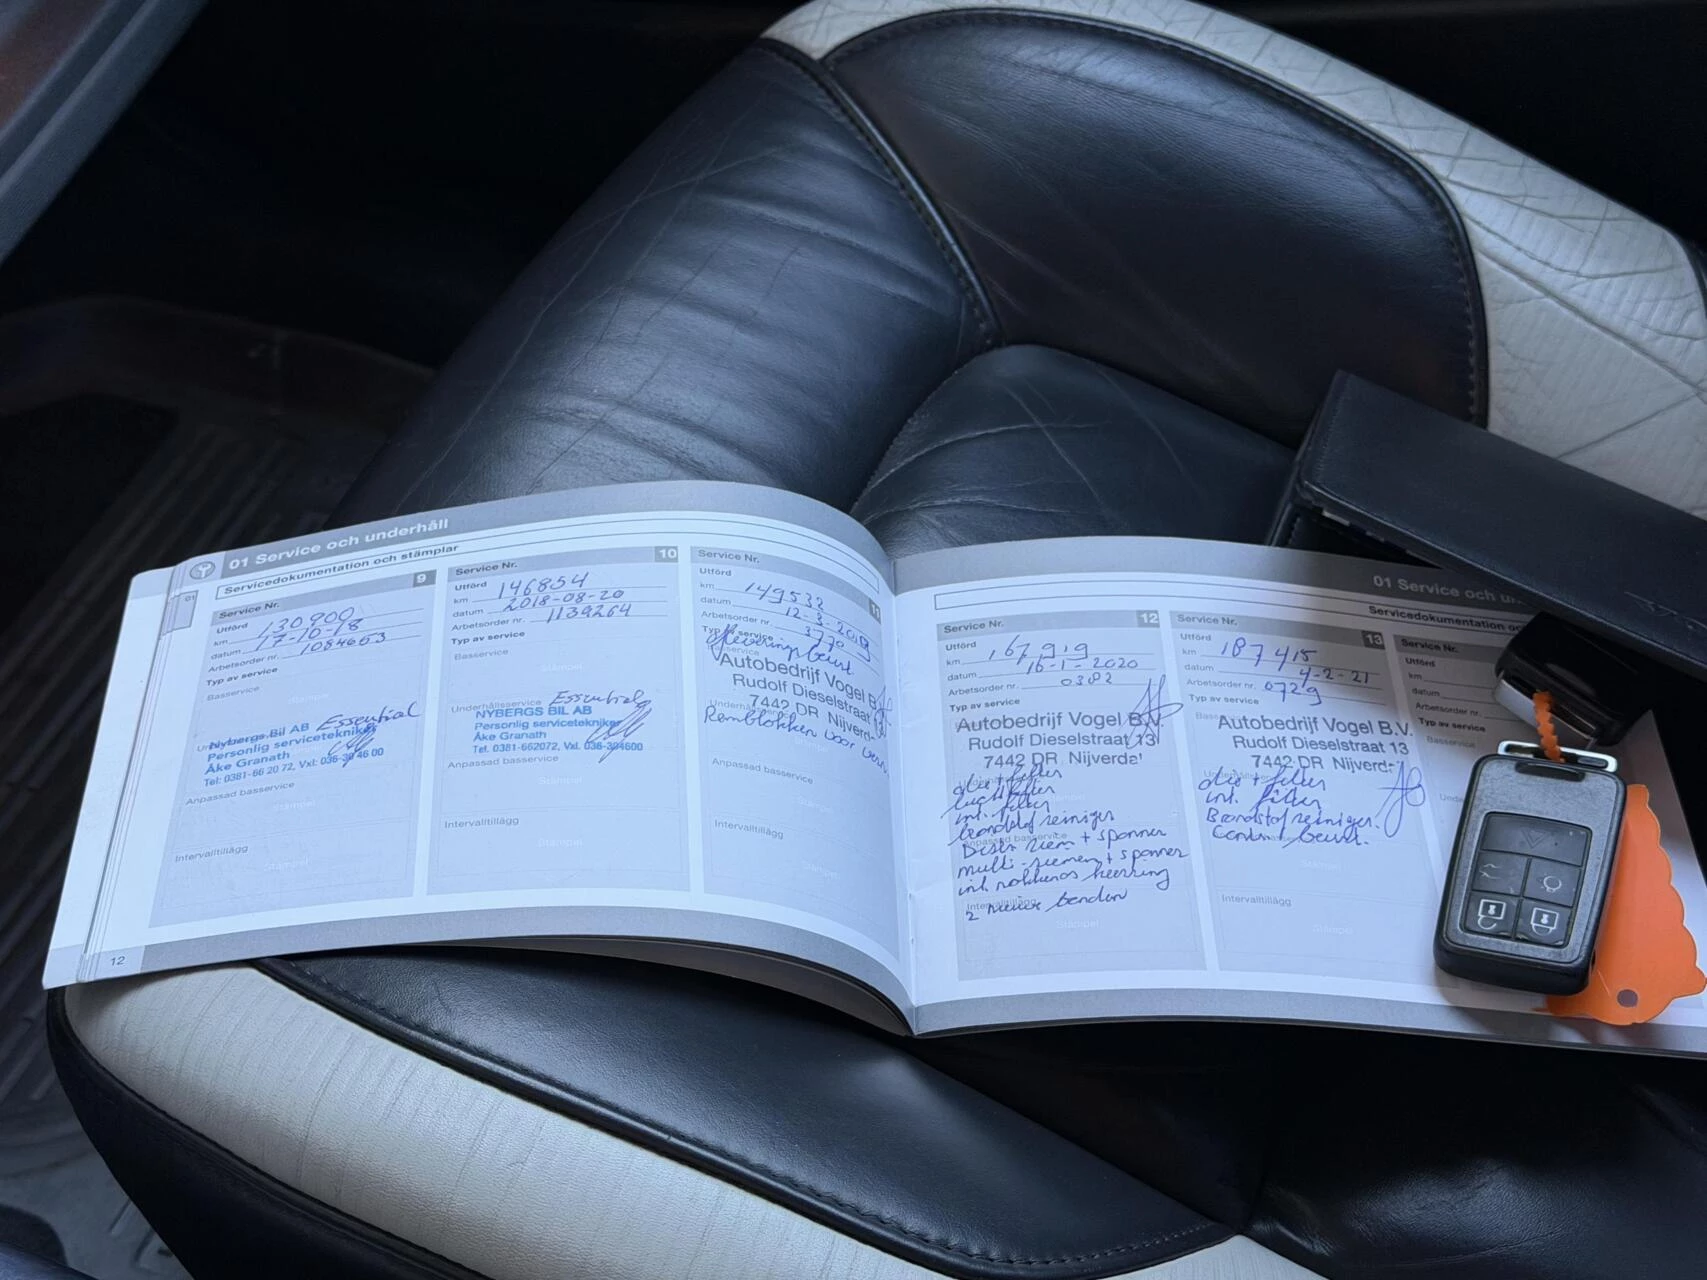 01 Service och underhåll
Servicedokumentation och stämplar
01
Service Nr. 9
Utförd
km 130900
datum 17-10-18
Arbetsorder nr. 1084653
Typ av service
Basservice
Stämpel
Essential
Nybergs Bil AB
Personlig servicetekniker
Åke Granath
Tel: 0381-66 20 72, Vxl: 036-30 46 00
Anpassad basservice
Stämpel
Intervalltillägg
Stämpel
12
Service Nr. 10
Utförd
km 146854
datum 2018-08-20
Arbetsorder nr. 1139264
Typ av service
Basservice
Stämpel
Underhållsservice Essential
NYBERGS BIL AB
Personlig servicetekniker
Åke Granath
Tel. 0381-662072, Vxl. 036-304600
Anpassad basservice
Stämpel
Intervalltillägg
Stämpel
Service Nr. 11
Utförd
km 149532
datum 12-3-2019
Arbetsorder nr. 3770
Typ av service
beurt
Autobedrijf Vogel B
Rudolf Dieselstraat
7442 DR Nijverd
Remblokken voor
Anpassad basservice
Stämpel
Intervalltillägg
Stämpel
01 Service och un
Servicedokumentation oc
Service Nr. 12
Utförd
km 167919
datum 16-1-2020
Arbetsorder nr. 0382
Typ av service
Autobedrijf Vogel B.V.
Rudolf Dieselstraat 13
7442 DR Nijverda
olie + filter
luchtfilter
int. filter
brandstof reiniger
Distr. riem + spanner
multi-riemen + spanner
int. nokkenas keerring
Intervalltillägg
2 nieuwe banden
Stämpel
Service Nr. 13
Utförd
km 187415
datum 4-2-21
Arbetsorder nr. 0729
Typ av service
Autobedrijf Vogel B.V.
Rudolf Dieselstraat 13
7442 DR Nijverd
olie + filter
int. filter
Brandstof reiniger.
beurt.
Stämpel
Intervalltillägg
Stämpel
Service Nr.
Utförd
km
datum
Arbetsorder nr.
Typ av service
Basservice